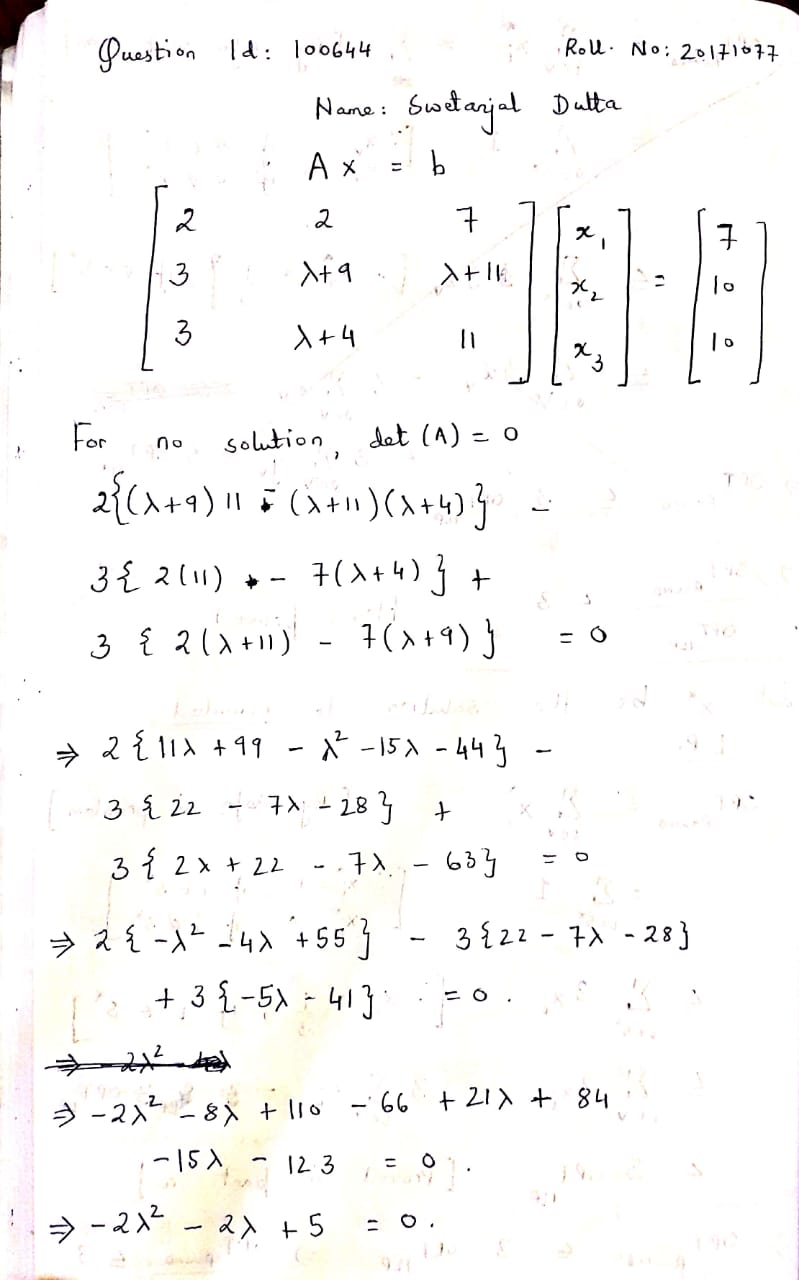 Question Id: 100644 Roll. No: 20171077
Name: Swetanjal Dutta
Ax = b
[ 2 2 7 ] [ x₁ ] = [ 7 ]
[ 3 λ+9 λ+11 ] [ x₂ ] = [ 10 ]
[ 3 λ+4 11 ] [ x₃ ] = [ 10 ]
For no solution, det (A) = 0
2{(λ+9) 11 - (λ+11)(λ+4)} -
3{ 2(11) - 7(λ+4) } +
3 { 2(λ+11) - 7(λ+9) } = 0
⇒ 2 { 11λ + 99 - λ² - 15λ - 44 } -
3 { 22 - 7λ - 28 } +
3 { 2λ + 22 - 7λ - 63 } = 0
⇒ 2 { -λ² - 4λ + 55 } - 3 { 22 - 7λ - 28 }
+ 3 { -5λ - 41 } = 0.
⇒ -2λ² - 8λ + 110 - 66 + 21λ + 84
-15λ - 123 = 0.
⇒ -2λ² - 2λ + 5 = 0.